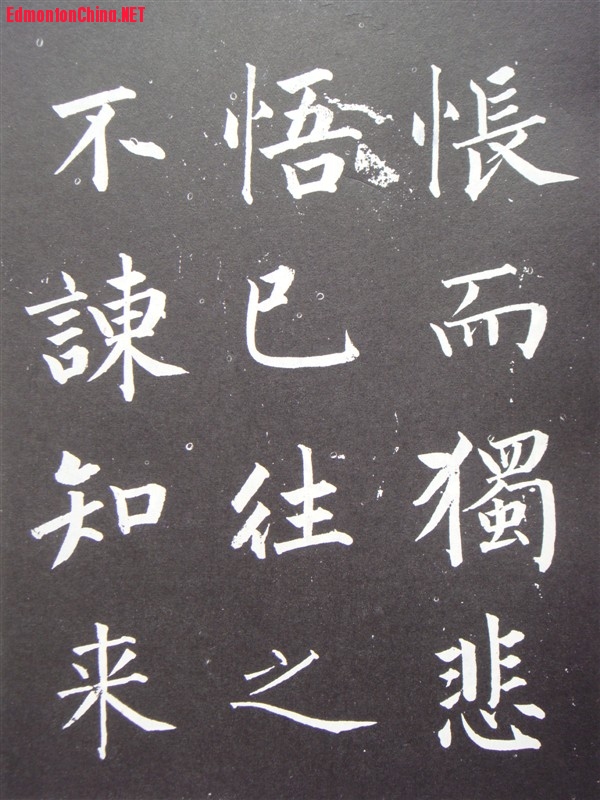 EdmontonChina.NET
悵而獨悲
悟已往之
不諫知来